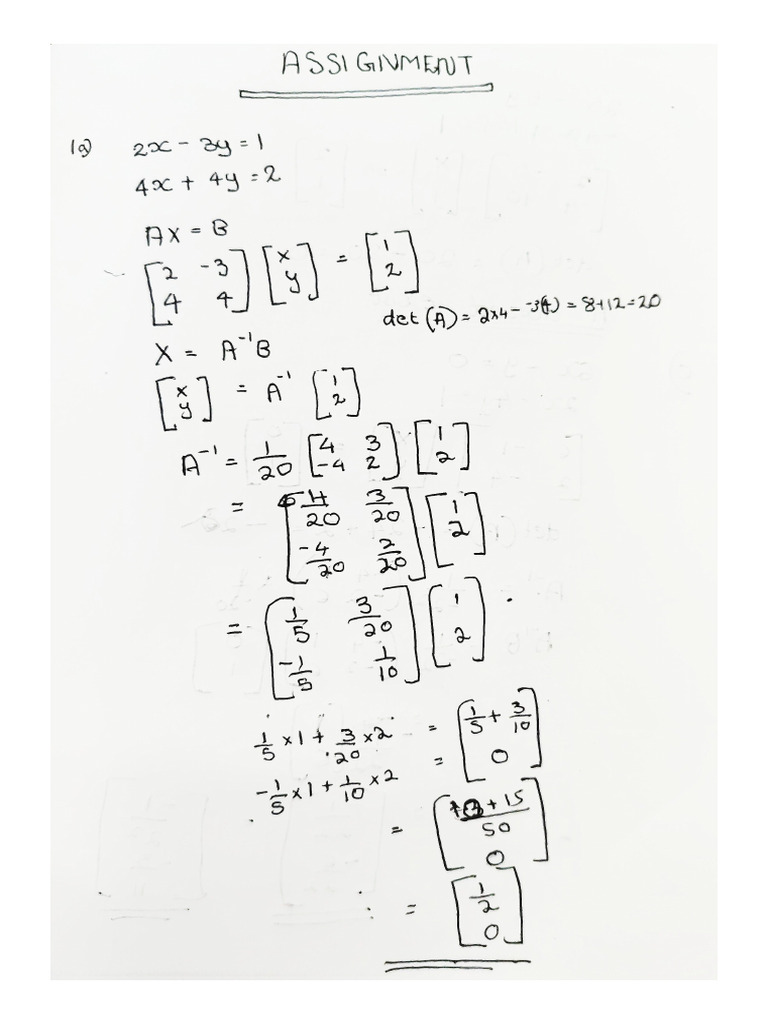 ASSIGNMENT
1a) 2x - 3y = 1
4x + 4y = 2
AX = B
[2 -3; 4 4] [x; y] = [1; 2]
det (A) = 2x4 - -3(4) = 8+12 = 20
X = A⁻¹B
[x; y] = A⁻¹ [1; 2]
A⁻¹ = 1/20 [4 3; -4 2] [1; 2]
= [4/20 3/20; -4/20 2/20] [1; 2]
= [1/5 3/20; -1/5 1/10] [1; 2]
1/5 x 1 + 3/20 x 2 = [1/5 + 3/10; 0]
-1/5 x 1 + 1/10 x 2 =
= [10 + 15/50; 0]
∴ = [1/2; 0]